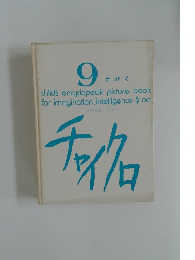 9
child's encyclopedic picture book
for imagination, intelligence & art
チャイクロ